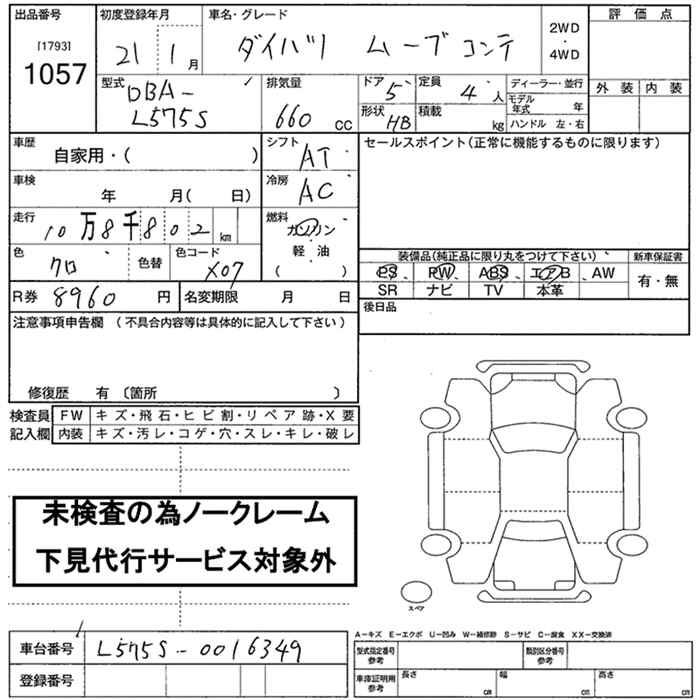 出品番号 初度登録年月 車名・グレード 評価点
[1793]
1057 21 1月 ダイハツ ムーブコンテ 2WD・4WD
外装 内装
型式 DBA-L575S 排気量 660cc ドア 5 定員 4人 ディーラー・並行
形状 HB 積載 kg モデル年式 年
ハンドル 左・右
車歴 自家用・( ) シフト AT セールスポイント(正常に機能するものに限ります)
車検 年 月( 日) 冷房 AC
走行 10万8千802km 燃料 ガソリン
軽油
( )
色 クロ 色替 色コード X07
装備品(純正品に限り丸をつけて下さい) 新車保証書
PS PW ABS エアB AW 有・無
SR ナビ TV 本革
R券 8960円 名変期限 月 日 後日品
注意事項申告欄 (不具合内容等は具体的に記入して下さい)
修復歴 有 〔箇所 〕
検査員記入欄 FW キズ・飛石・ヒビ割・リペア跡・X要
内装 キズ・汚レ・コゲ・穴・スレ・キレ・破レ
未検査の為ノークレーム
下見代行サービス対象外
スペア
A-キズ E-エクボ U-凹み W-補修跡 S-サビ C-腐食 XX-交換済
車台番号 L575S-0016349 型式指定番号 参考 類別区分番号 参考
登録番号 車庫証明用 参考 長さ cm 幅 cm 高さ cm